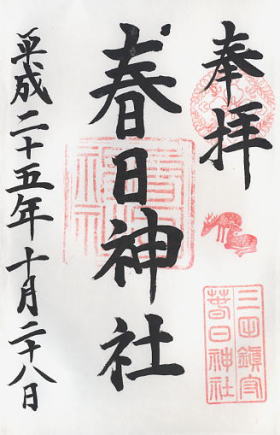 奉拝
三田鎮守
春日神社
春日神社
平成二十五年十月二十八日